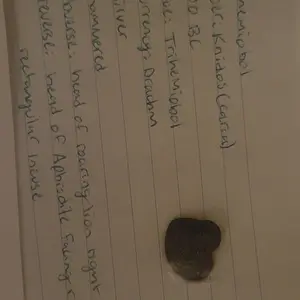 Trihemiobol
Knidos (Caria)
BC
Trihemiobol
Currency: Drachm
Silver
hammered
obverse: head of roaring lion right
reverse: head of Aphrodite facing
rectangular incuse